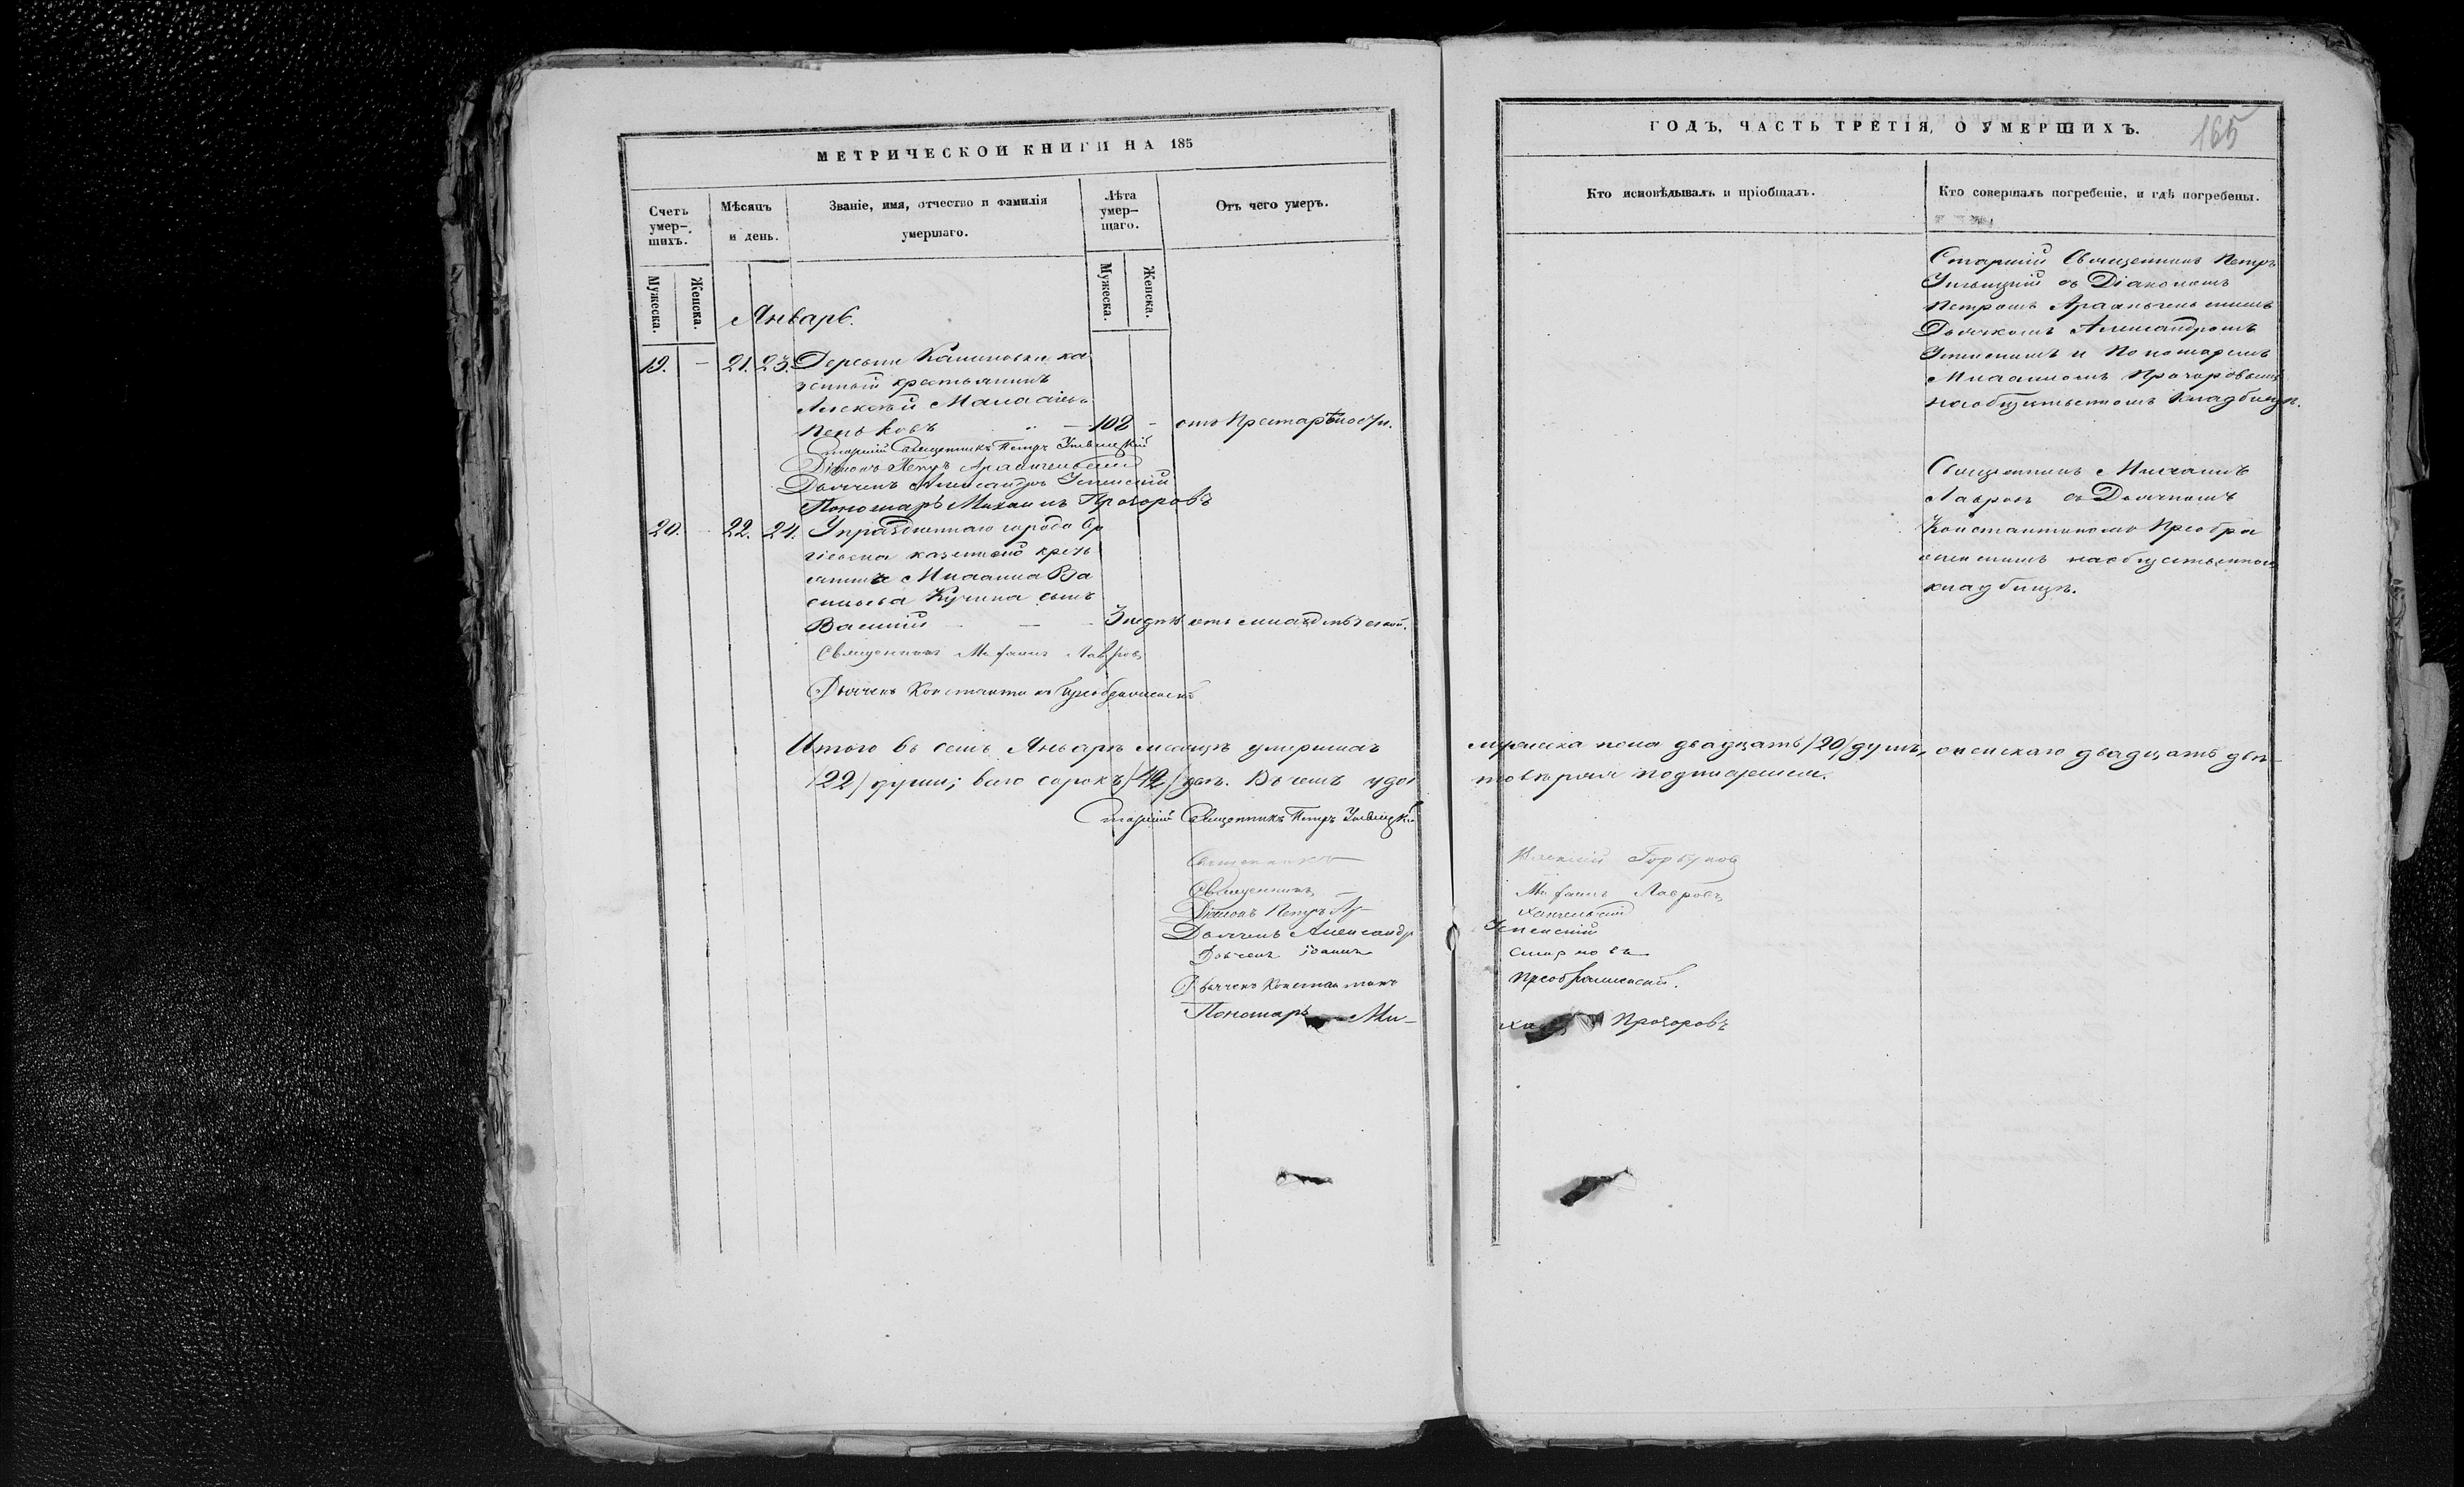 МЕТРИЧЕСКОЙ КНИГИ НА 185
Счетъ умер-шихъ.
Мѣсяцъ и день.
Званіе, имя, отчество и фамилія умершаго.
Лѣта умер-шаго.
Отъ чего умеръ.
Мужеска.
Женска.
Мужеска.
Женска.
Январь.
19. - 21. 23. Деревни Калиновки ка
зенный крестьянинъ
Алексѣй
Пеньковъ - 102 - отъ Престарѣлости.
Старшій Священникъ Петръ
Діаконъ Петръ Архангельскій
Дьячекъ Александръ Успенскій
Пономарь Михаилъ Прохоровъ
20. - 22. 24. Упраздненнаго города Се
ргіевска казеннаго кресть
янина Михаила Ва
сильева Кузина сынъ
Василій - - 3 недѣл отъ младенческой.
Священникъ Михаилъ Лавровъ
Дьячекъ Константинъ Преображенскій
Итого въ семъ Январѣ мѣсяцѣ умершихъ
/22/ души; всего сорокъ /42/ двѣ. Въ чемъ удос
Старшій Священникъ Петръ
Священникъ
Священникъ
Діаконъ Петръ Ар-
Дьячекъ Александръ
Дьячекъ Іоаннъ
Дьячекъ Константинъ
Пономарь Ми-
ГОДЪ, ЧАСТЬ ТРЕТІЯ, О УМЕРШИХЪ.
165
Кто исповѣдывалъ и пріобщалъ.
Кто совершалъ погребеніе, и гдѣ погребены.
Старшій Священникъ Петръ
съ Діакономъ
Петромъ Архангельскимъ
Дьячкомъ Александромъ
Успенскимъ и Пономаремъ
Михаиломъ Прохоровымъ
на общественномъ кладбищѣ.
Священникъ Михаилъ
Лавровъ съ Дьячкомъ
Константиномъ Преобра
женскимъ на общественномъ
кладбищѣ.
мужеска пола двадцать /20/ душъ, женскаго двадцать двѣ
товѣряя подписуемся.
Алексій Горбуновъ
Михаилъ Лавровъ
хангельскій
Успенскій
Смирновъ
Преображенскій.
Прохоровъ